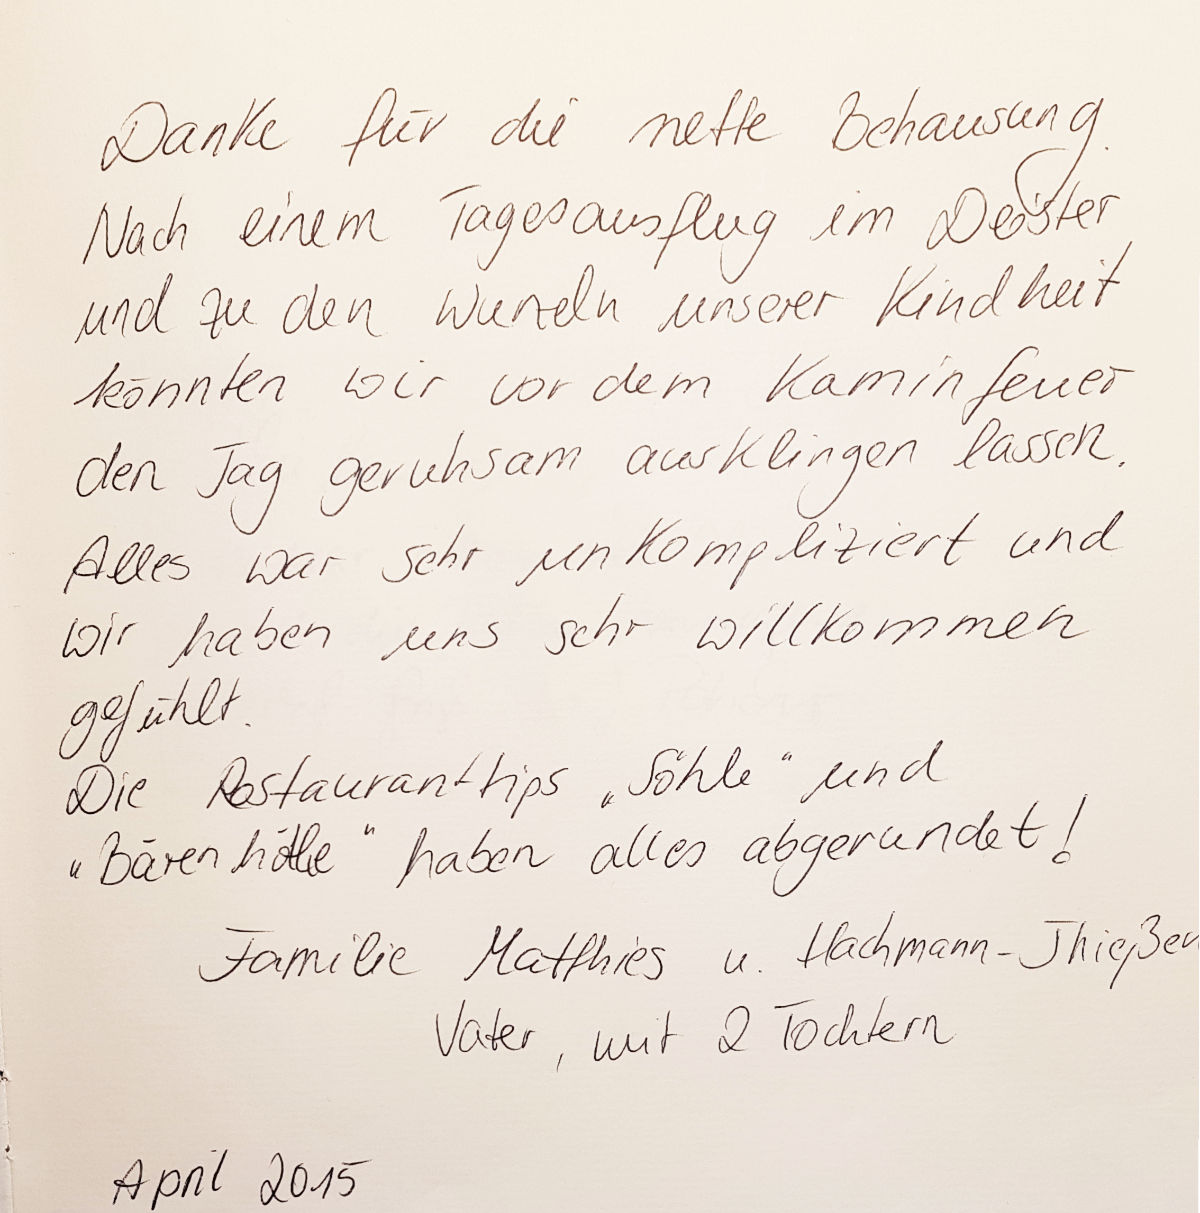 Danke für die nette Behausung.
Nach einem Tagesausflug im Deister
und zu den Wurzeln unserer Kindheit
könnten wir vor dem Kaminfeuer
den Tag geruhsam ausklingen lassen.
Alles war sehr unkompliziert und
wir haben uns sehr willkommen
gefühlt.
Die Restauranttips „Söhle“ und
„Bärenhölle“ haben alles abgerundet!
Familie Matthies u. Hachmann-Thießen
Vater, mit 2 Tochtern
April 2015